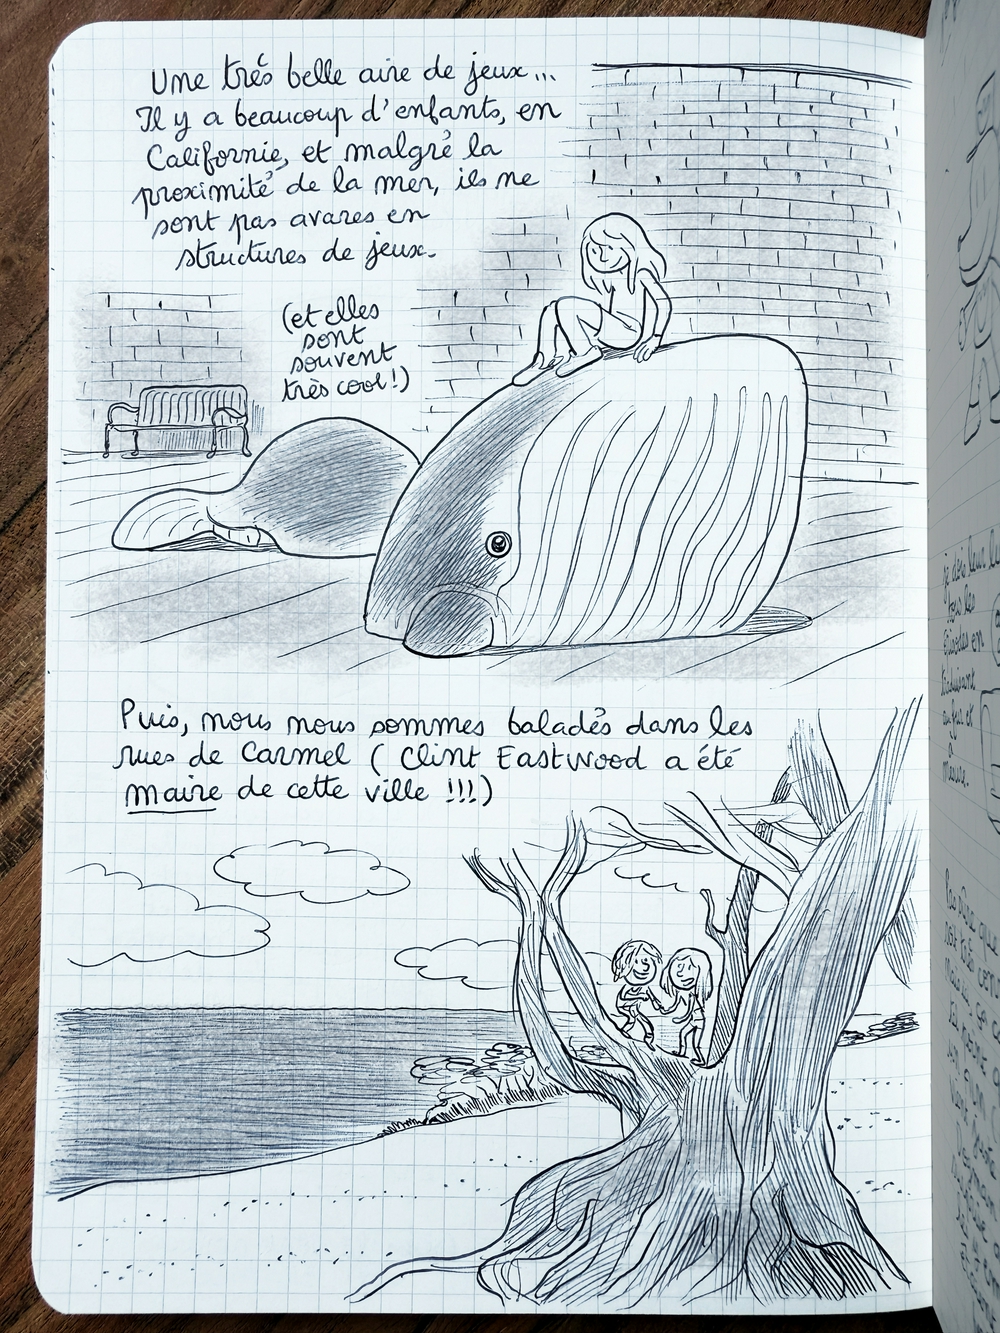 Une très belle aire de jeux...
Il y a beaucoup d'enfants, en
Californie, et malgré la
proximité de la mer, ils ne
sont pas avares en
structures de jeux.
(et elles
sont
souvent
très cool!)
Puis, nous nous sommes baladés dans les
rues de Carmel (Clint Eastwood a été
maire de cette ville !!!)
je dois leur
tous les
épisodes en
traduisant
au fur et